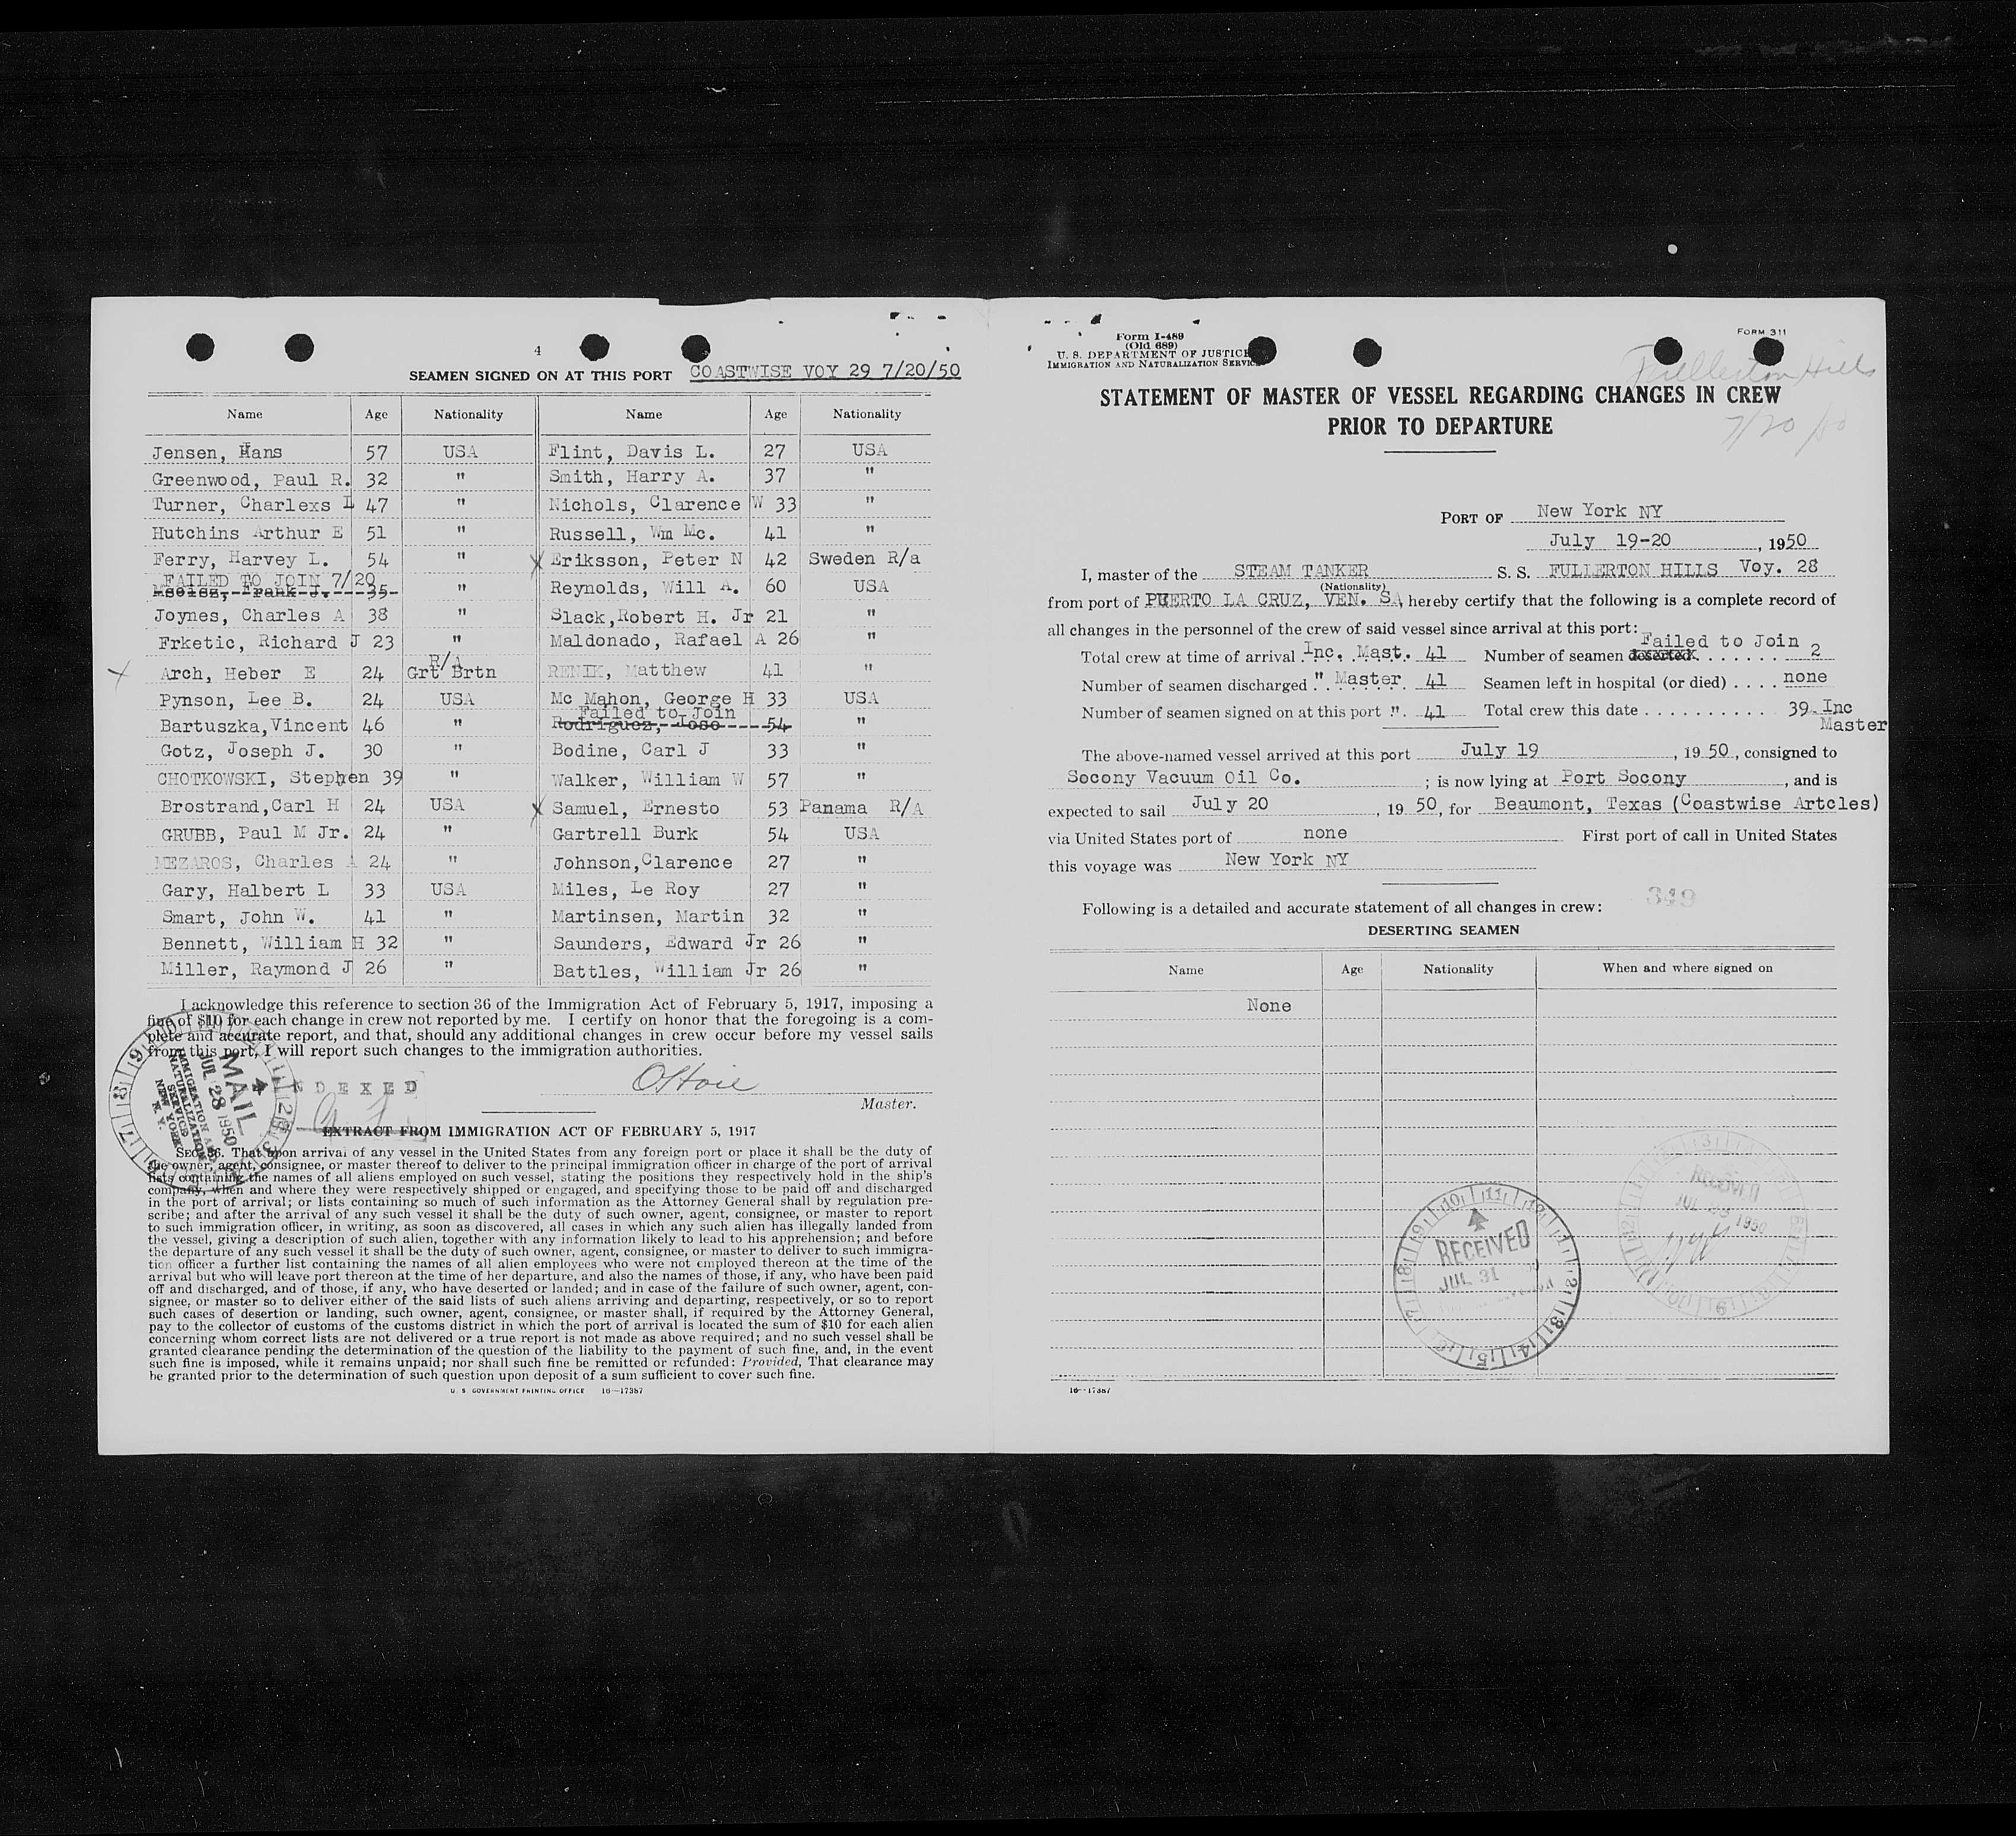 4
SEAMEN SIGNED ON AT THIS PORT COASTWISE VOY 29 7/20/50
Name Age Nationality Name Age Nationality
Jensen, Hans 57 USA Flint, Davis L. 27 USA
Greenwood, Paul R. 32 " Smith, Harry A. 37 "
Turner, Charlexs L 47 " Nichols, Clarence W 33 "
Hutchins Arthur E 51 " Russell, Wm Mc. 41 "
Ferry, Harvey L. 54 " X Eriksson, Peter N 42 Sweden R/a
FAILED TO JOIN 7/20
Frank J. 35 " Reynolds, Will A. 60 USA
Joynes, Charles A 38 " Slack,Robert H. Jr 21 "
Frketic, Richard J 23 " Maldonado, Rafael A 26 "
R/A
X Arch, Heber E 24 Grt Brtn RENIK, Matthew 41 "
Pynson, Lee B. 24 USA Mc Mahon, George H 33 USA
Failed to Join
Bartuszka,Vincent 46 " Rodriguez, Jose 54 "
Gotz, Joseph J. 30 " Bodine, Carl J 33 "
CHOTKOWSKI, Stephen 39 " Walker, William W 57 "
Brostrand,Carl H 24 USA X Samuel, Ernesto 53 Panama R/A
GRUBB, Paul M Jr. 24 " Gartrell Burk 54 USA
MEZAROS, Charles A 24 " Johnson,Clarence 27 "
Gary, Halbert L 33 USA Miles, Le Roy 27 "
Smart, John W. 41 " Martinsen, Martin 32 "
Bennett, William H 32 " Saunders, Edward Jr 26 "
Miller, Raymond J 26 " Battles, William Jr 26 "
I acknowledge this reference to section 36 of the Immigration Act of February 5, 1917, imposing a
fine of $10 for each change in crew not reported by me. I certify on honor that the foregoing is a com-
plete and accurate report, and that, should any additional changes in crew occur before my vessel sails
from this port, I will report such changes to the immigration authorities.
MAIL
JUL 28 1950
IMMIGRATION AND
NATURALIZATION
SERVICE
NEW YORK
N. Y.
INDEXED
Master.
EXTRACT FROM IMMIGRATION ACT OF FEBRUARY 5, 1917
SEC. 36. That upon arrival of any vessel in the United States from any foreign port or place it shall be the duty of
the owner, agent, consignee, or master thereof to deliver to the principal immigration officer in charge of the port of arrival
lists containing the names of all aliens employed on such vessel, stating the positions they respectively hold in the ship's
company, when and where they were respectively shipped or engaged, and specifying those to be paid off and discharged
in the port of arrival; or lists containing so much of such information as the Attorney General shall by regulation pre-
scribe; and after the arrival of any such vessel it shall be the duty of such owner, agent, consignee, or master to report
to such immigration officer, in writing, as soon as discovered, all cases in which any such alien has illegally landed from
the vessel, giving a description of such alien, together with any information likely to lead to his apprehension; and before
the departure of any such vessel it shall be the duty of such owner, agent, consignee, or master to deliver to such immigra-
tion officer a further list containing the names of all alien employees who were not employed thereon at the time of the
arrival but who will leave port thereon at the time of her departure, and also the names of those, if any, who have been paid
off and discharged, and of those, if any, who have deserted or landed; and in case of the failure of such owner, agent, con-
signee, or master so to deliver either of the said lists of such aliens arriving and departing, respectively, or so to report
such cases of desertion or landing, such owner, agent, consignee, or master shall, if required by the Attorney General,
pay to the collector of customs of the customs district in which the port of arrival is located the sum of $10 for each alien
concerning whom correct lists are not delivered or a true report is not made as above required; and no such vessel shall be
granted clearance pending the determination of the question of the liability to the payment of such fine, and, in the event
such fine is imposed, while it remains unpaid; nor shall such fine be remitted or refunded: Provided, That clearance may
be granted prior to the determination of such question upon deposit of a sum sufficient to cover such fine.
U. S. GOVERNMENT PRINTING OFFICE 16—17387
Form I-489
(Old 689)
U. S. DEPARTMENT OF JUSTICE
IMMIGRATION AND NATURALIZATION SERVICE
FORM 311
Fullerton Hills
7/20/50
STATEMENT OF MASTER OF VESSEL REGARDING CHANGES IN CREW
PRIOR TO DEPARTURE
PORT OF New York NY
July 19-20, 1950
I, master of the STEAM TANKER S. S. FULLERTON HILLS Voy. 28
(Nationality)
from port of PUERTO LA CRUZ, VEN. SA, hereby certify that the following is a complete record of
all changes in the personnel of the crew of said vessel since arrival at this port:
Failed to Join
Total crew at time of arrival Inc. Mast. 41 Number of seamen deserted 2
Number of seamen discharged " Master 41 Seamen left in hospital (or died) none
Number of seamen signed on at this port ". 41 Total crew this date 39 Inc
Master
The above-named vessel arrived at this port July 19, 1950, consigned to
Socony Vacuum Oil Co.; is now lying at Port Socony, and is
expected to sail July 20, 1950, for Beaumont, Texas (Coastwise Artcles)
via United States port of none First port of call in United States
this voyage was New York NY
349
Following is a detailed and accurate statement of all changes in crew:
DESERTING SEAMEN
Name Age Nationality When and where signed on
None
RECEIVED
JUL 31
RECEIVED
JUL 28 1950
16—17387